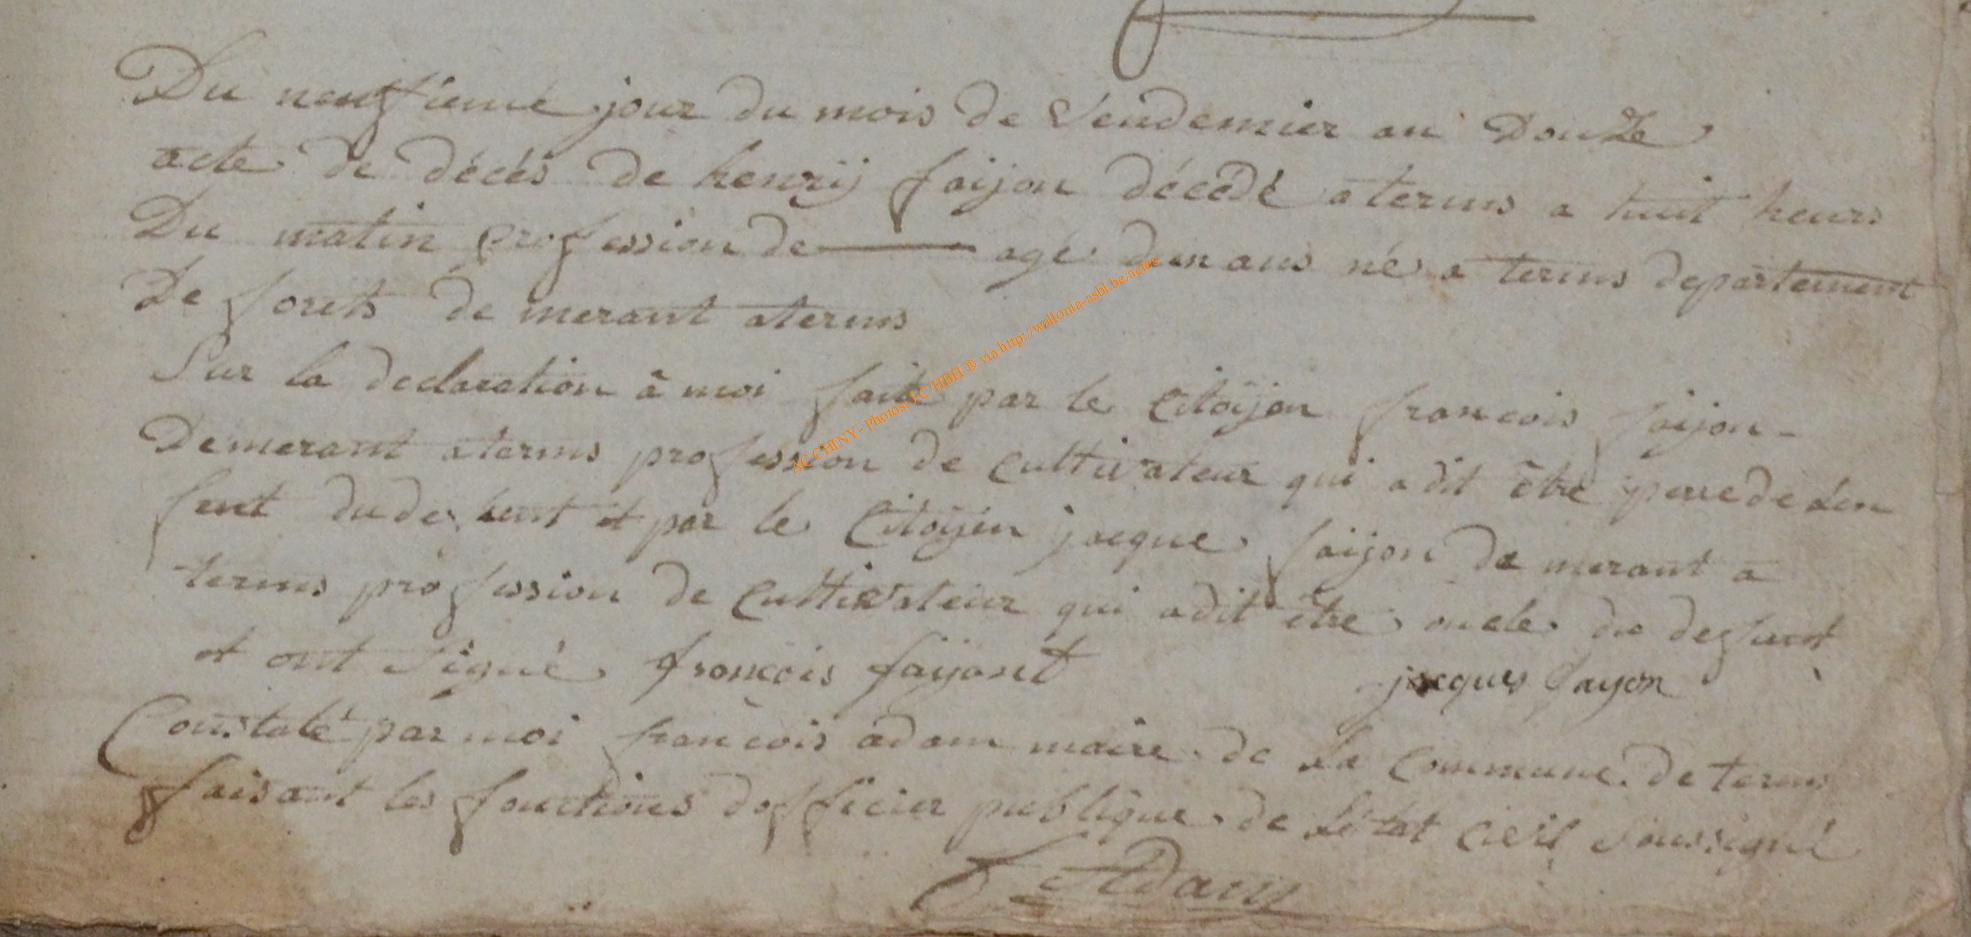 Du neuffieme jour du mois de Vendemier an Douze
acte de décés de henrij faijon décédé a terms a huit heurs
Du matin profession de agé dun ans né a terms departement
De forets de merant a terms
Sur la declaration â moi fait par le Citoijen francois faijon
Demerant a terms profession de cultivateur qui a dit être pere de Len
fent du defunt et par le Citoijen jacque faijon de merant a
terms profession de Cultivateur qui a dit être oncle du deffunt
et ont signé françois fayont jacques fayon
Constaté par moi francois adam maire de La Commune de terms
faisant les fonctions dofficier publique de Létat Civil soussigné
f Adam
ACCHINY - Photos LC/HBH ® via http://wallonia-asbl.be/acnre